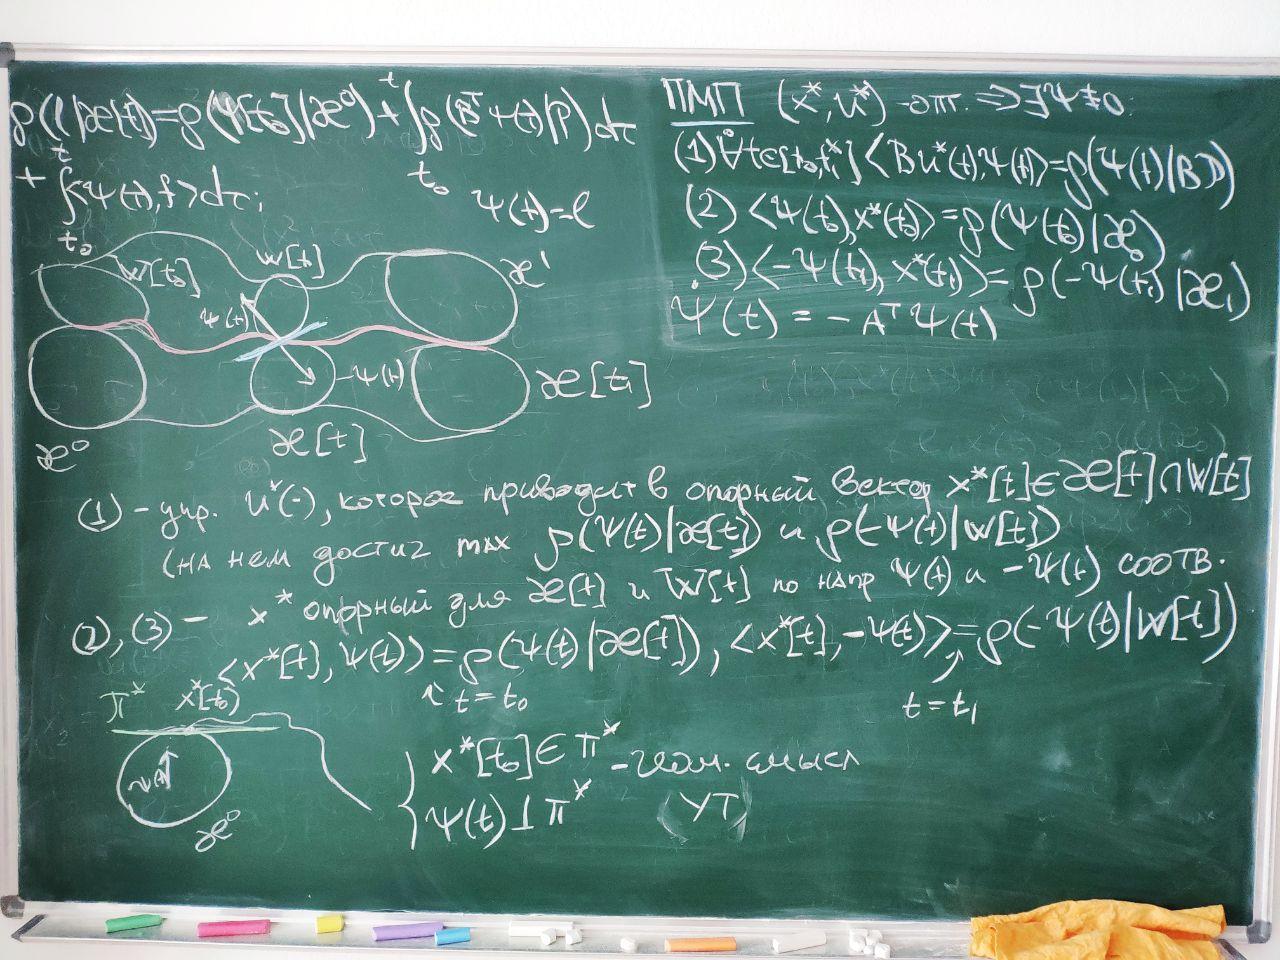 ρ(l|𝒳[t])=ρ(Ψ[t₀]|𝒳⁰)+∫ₜ₀ᵗ ρ(BᵀΨ(τ)|P)dτ
+ ∫ₜ₀ᵗ <Ψ(τ), f>dτ;
Ψ(t)=l
W[t₀]
W[t]
𝒳¹
Ψ(t)
-Ψ(t)
𝒳[t₁]
𝒳⁰
𝒳[t]
ПМП (x*, u*) - опт. ⇒ ∃Ψ≢0:
(1) ∀t∈[t₀,t₁*] <Bu*(t),Ψ(t)>=ρ(Ψ(t)|BP)
(2) <Ψ(t₀),x*(t₀)>=ρ(Ψ(t₀)|𝒳₀)
(3) <-Ψ(t₁), x*(t₁)>=ρ(-Ψ(t₁)|𝒳₁)
Ψ̇(t) = -AᵀΨ(t)
(1) - упр. u*(·), которое приводит в опорный вектор x*[t]∈𝒳[t]∩W[t]
(на нем достиг max ρ(Ψ(t)|𝒳[t]) и ρ(-Ψ(t)|W[t])
по напр Ψ(t) и -Ψ(t) соотв.
(2), (3) - x* опорный для 𝒳[t] и W[t]
<x*[t], Ψ(t)>=ρ(Ψ(t)|𝒳[t]), <x*[t], -Ψ(t)>=ρ(-Ψ(t)|W[t])
t=t₀
t=t₁
π* x*[t₀]
Ψ(t)
𝒳⁰
{ x*[t₀]∈π* - геом. смысл
Ψ(t)⊥π* (УТ)